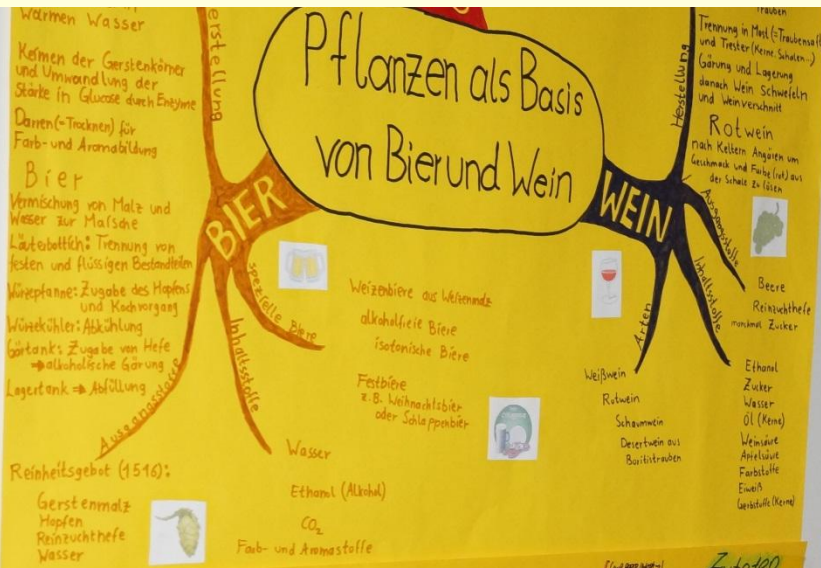 warmen Wasser
Keimen der Gerstenkörner
und Umwandlung der
Stärke in Glucose durch Enzyme
Darren (=Trocknen) für
Farb- und Aromabildung
Bier
Vermischung von Malz und
Wasser zur Maische
Läuterbottich: Trennung von
festen und flüssigen Bestandteilen
Würzepfanne: Zugabe des Hopfens
und Kochvorgang
Würzekühler: Abkühlung
Gärtank: Zugabe von Hefe
➡alkoholische Gärung
Lagertank ➡ Abfüllung
Ausgangsstoffe
Reinheitsgebot (1516):
Gerstenmalz
Hopfen
Reinzuchthefe
Wasser
erstellung
BIER
spezielle Biere
Inhaltsstoffe
Pflanzen als Basis
von Bier und Wein
Weizenbiere aus Weizenmalz
alkoholfreie Biere
isotonische Biere
Festbiere
z.B. Weihnachtsbier
oder Schlappenbier
Wasser
Ethanol (Alkohol)
CO₂
Farb- und Aromastoffe
WEIN
Herstellung
Trauben
Trennung in Most (=Traubensaft
und Trester (Kerne, Schalen...)
Gärung und Lagerung
danach Wein Schwefeln
und Weinverschnitt
Rotwein
nach Keltern Angären um
Geschmack und Farbe (rot) aus
der Schale zu lösen
Ausgangsstoffe
Beere
Reinzuchthefe
manchmal Zucker
Inhaltsstoffe
Ethanol
Zucker
Wasser
Öl (Kerne)
Weinsäure
Apfelsäure
Farbstoffe
Eiweiß
Gerbstoffe (Kerne)
Arten
Weißwein
Rotwein
Schaumwein
Desertwein aus
Boritistrauben
Zutaten